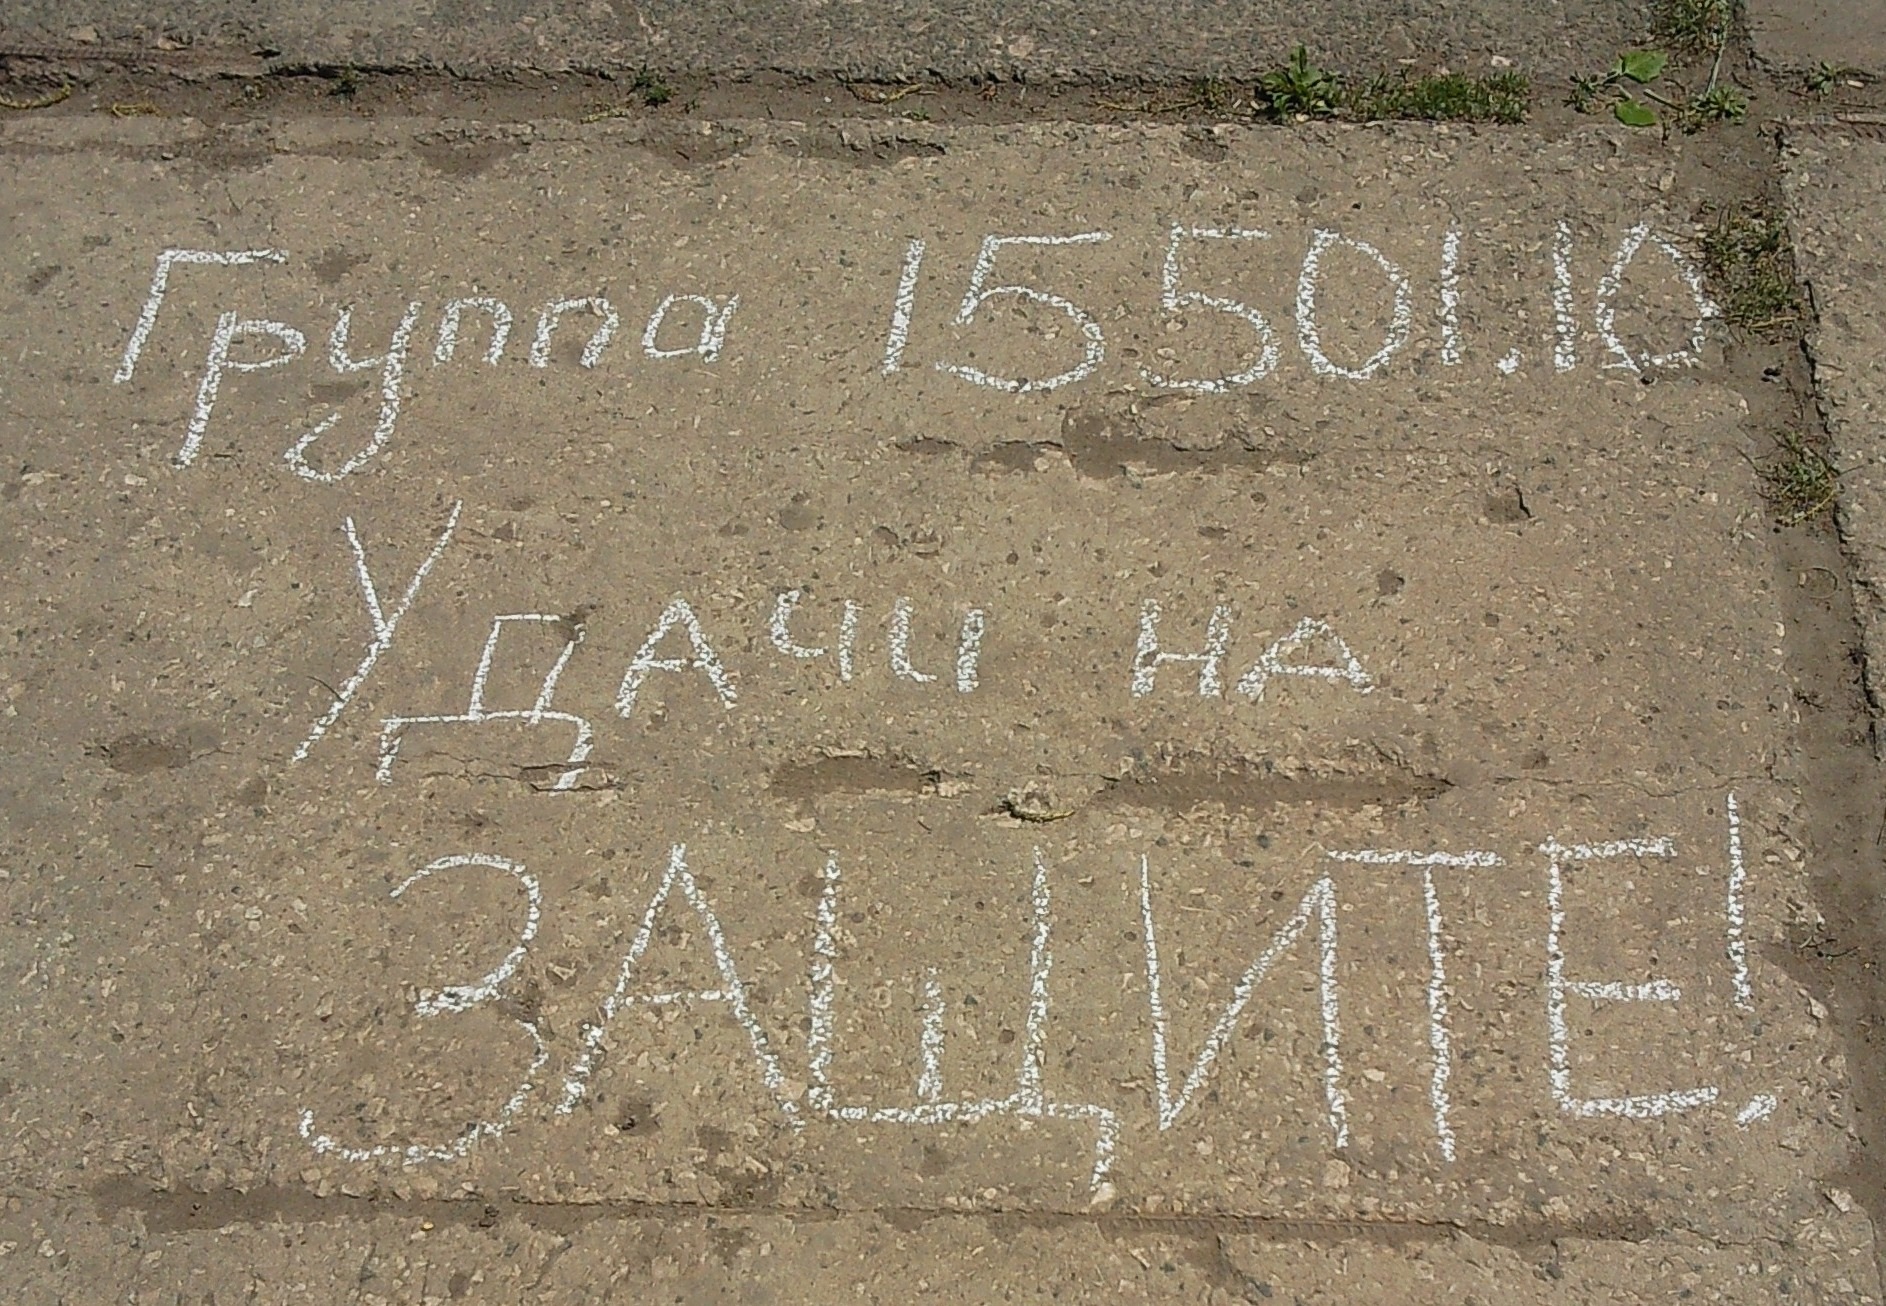 Группа 15501.10
УДАЧИ НА
ЗАЩИТЕ!